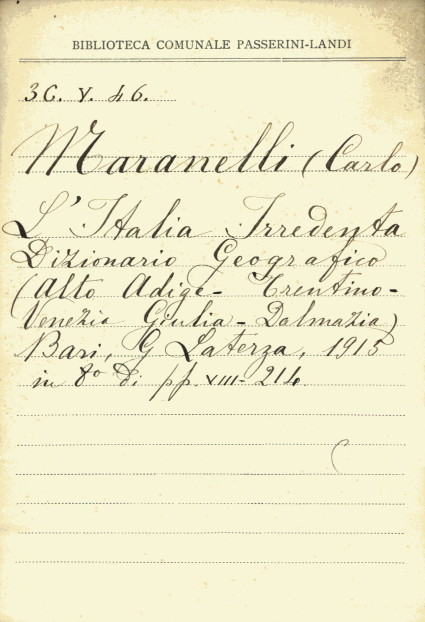 BIBLIOTECA COMUNALE PASSERINI-LANDI
3C. V. 46.
Maranelli (Carlo)
L'Italia Irredenta
Dizionario Geografico
(Alto Adige - Trentino -
Venezia Giulia - Dalmazia)
Bari, G Laterza, 1915
in 8º di pp. XIII - 214